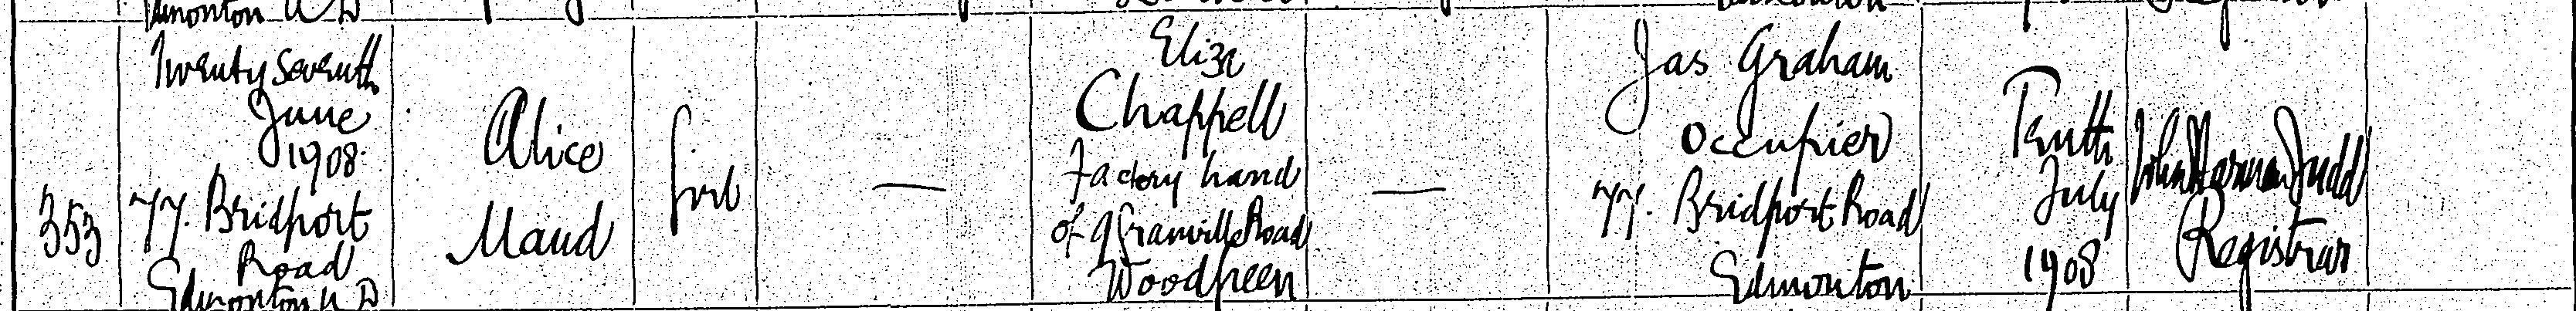 353
Twenty seventh
June
1908
77. Bridport
Road
Edmonton U D
Alice
Maud
Girl
—
Eliza
Chappell
Factory hand
of 9 Granville Road
Wood Green
—
Jas Graham
Occupier
77. Bridport Road
Edmonton
Tenth
July
1908
John Harman Judd
Registrar